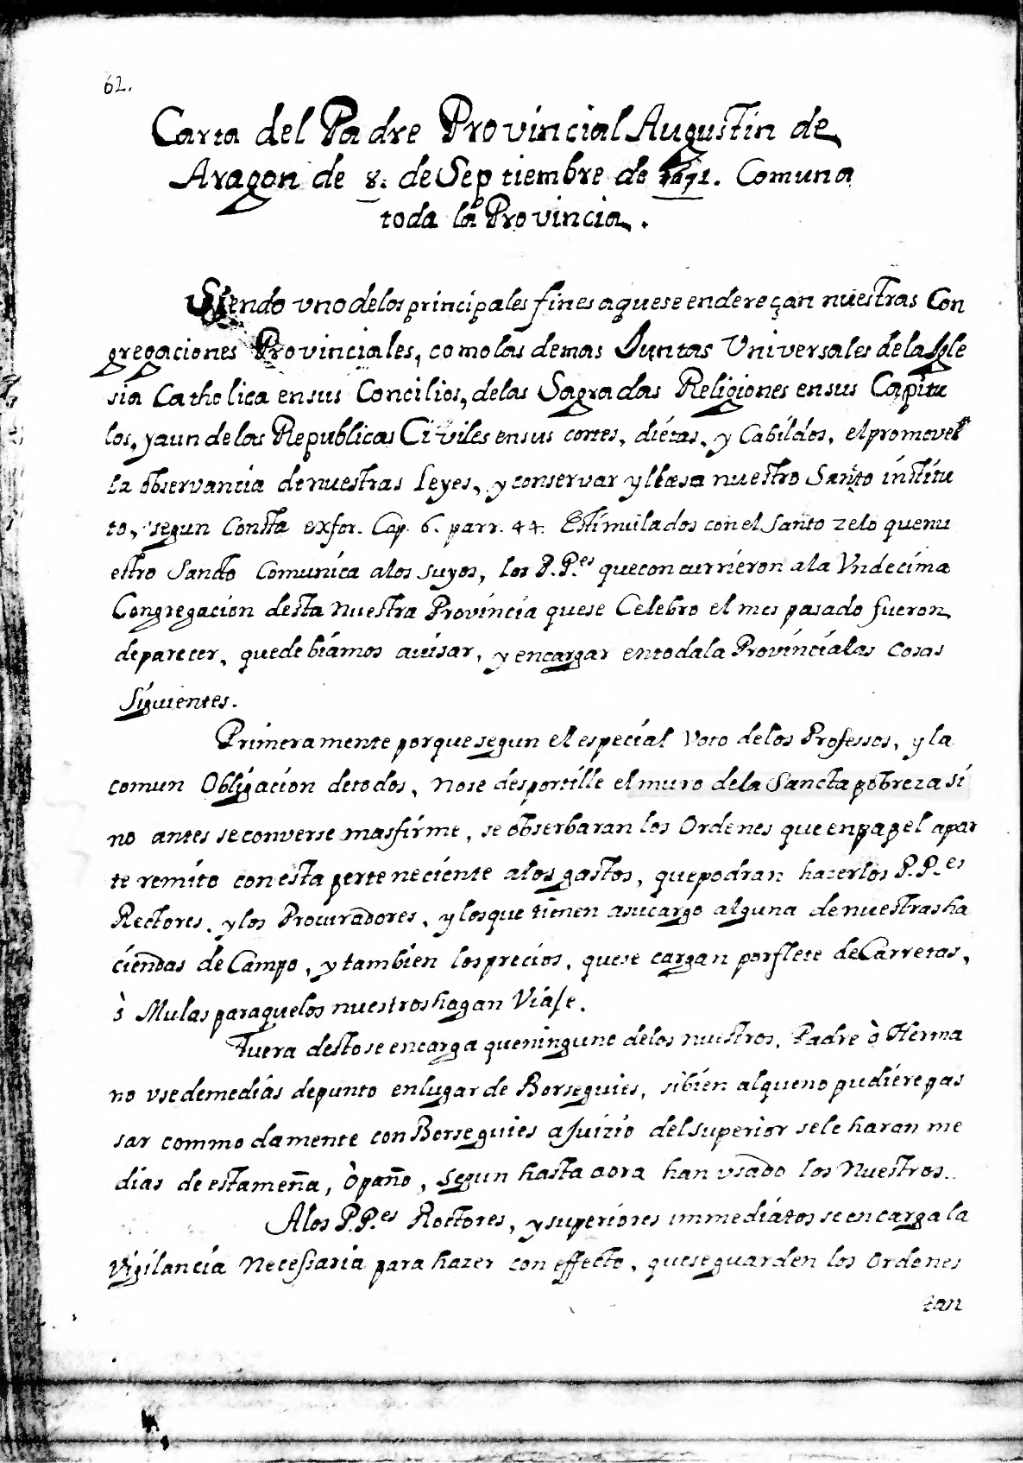 62.
Carta del Padre Provincial Augustin de
Aragon de 8. de Septiembre de 1671. Comun a
toda la Provincia.
Siendo uno de los principales fines a que se endereçan nuestras Con
gregaciones Provinciales, como las demas Juntas Universales de la Igle
sia Catholica en sus Concilios, de las Sagradas Religiones en sus Capitu
los, y aun de las Republicas Civiles en sus cortes, diétas, y Cabildos, el promover
la observancia de nuestras leyes, y conservar y llæsa nuestro Santo institu
to, segun Consta ex for. Cap. 6. parr. 44. Estimulados con el Santo zelo que nu
estro Sancto Comunica a los suyos, los P.P.es que concurrieron a la Undecima
Congregacion desta nuestra Provincia que se Celebro el mes pasado fueron
de parecer, que debiamos auisar, y encargar en toda la Provincia las cosas
Siguientes.
Primeramente porque segun el especial Voto de los Professos, y la
comun Obligacion de todos, no se desportille el muro de la Sancta pobreza si
no antes se converse mas firme, se obserbaran los Ordenes que en papel apar
te remito con esta perteneciente a los gastos, que podran hazer los P.P.es
Rectores, y los Procuradores, y los que tienen a su cargo alguna de nuestras ha
ciendas de Campo, y tambien los precios, que se cargan por flete de Carretas,
ò Mulas para que los nuestros hagan Viaje.
Fuera desto se encarga que ningune de los nuestros, Padre ò Herma
no vse de medias de punto en lugar de Borseguies, si bien al que no pudiere pas
sar commodamente con Borseguies a juizio del superior se le haran me
dias de estameña, ò paño, segun hasta aora han vsado los Nuestros..
A los P.P.es Rectores, y superiores immediatos se encarga la
Vigilancia necessaria para hazer con effecto, que se guarden los ordenes
tan